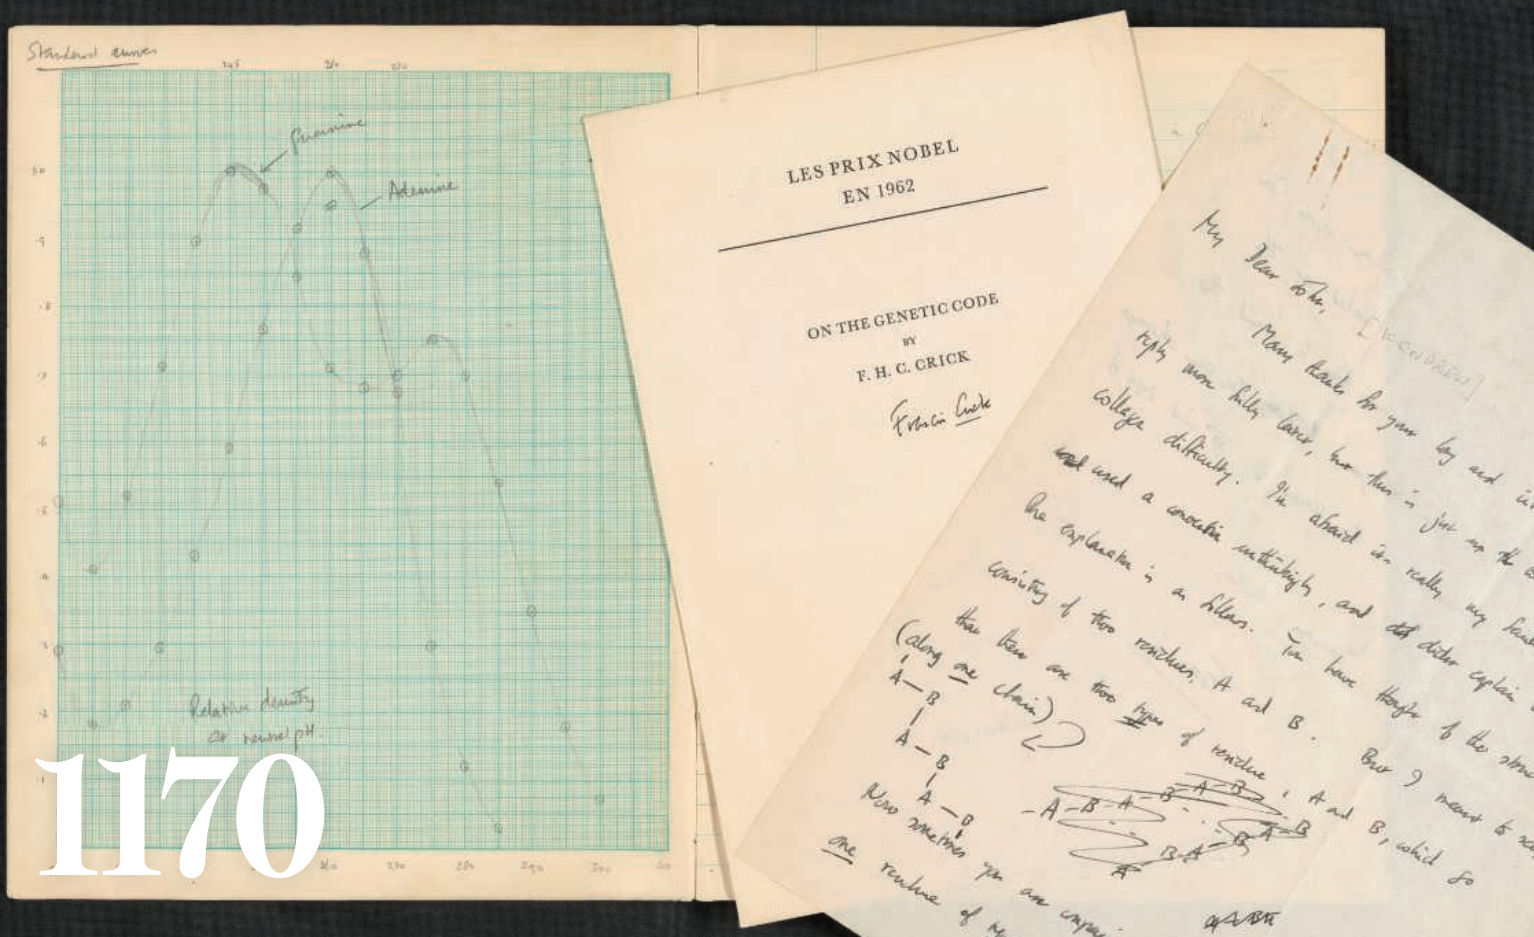 Standard curves
245 260 270
Guanine
Adenine
1.0
.9
.8
.7
.6
.5
.4
.3
.2
.1
Relative density
at neutral pH.
260 270 280 290 300
1170
LES PRIX NOBEL
EN 1962
ON THE GENETIC CODE
BY
F. H. C. CRICK
Francis Crick
My Dear John,
[KENDREW]
Many thanks for your long and
reply more fully later, but this is just on the
collagen difficulty. I'm afraid it's really my fault
used a convention unthinkingly, and did didn't explain
The explanation is as follows. You have thought of the
consisting of two residues, A and B. But I meant to
that there are two types of residue, A and B, which go
(along one chain)
A—B
A—B
A—B
-A-B-A-B-A-B
A B-A-B-A-B
Now sometimes you are
one residue of